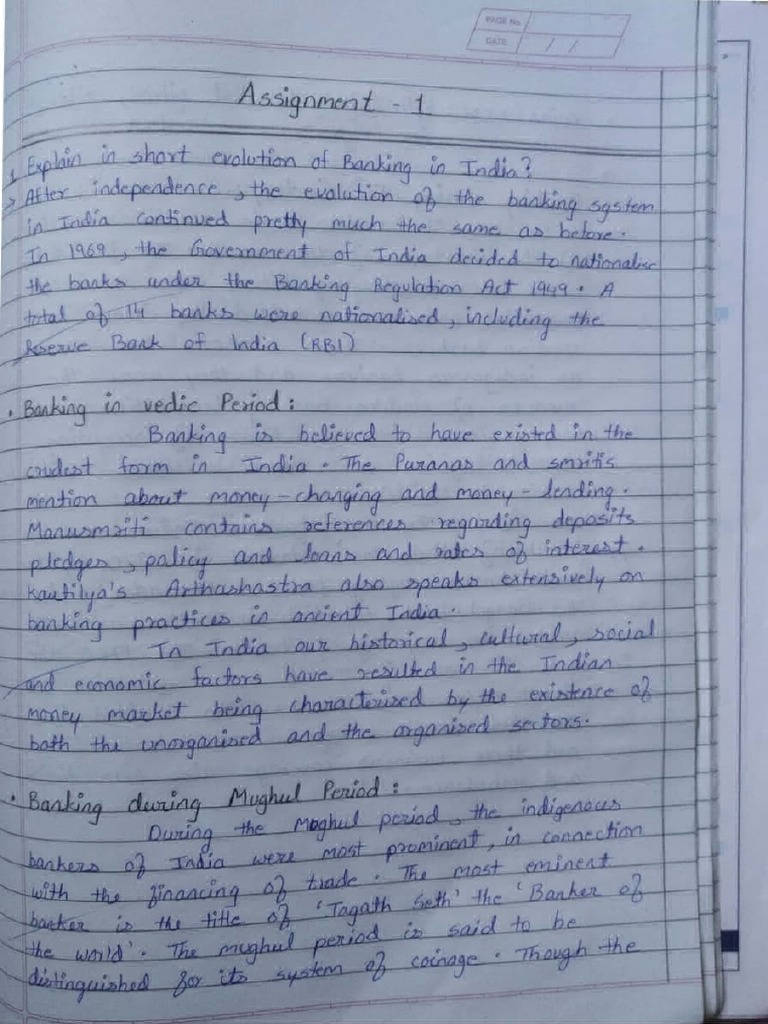 PAGE No.
DATE / /
Assignment - 1
1. Explain in short evolution of Banking in India?
→ After independence, the evolution of the banking system
in India continued pretty much the same as before.
In 1969, the Government of India decided to nationalise
the banks under the Banking Regulation Act 1949. A
total of 14 banks were nationalised, including the
Reserve Bank of India (RBI)
• Banking in vedic Period:
Banking is believed to have existed in the
crudest form in India. The Puranas and smritis
mention about money-changing and money-lending.
Manusmriti contains references regarding deposits
pledges, policy and loans and rates of interest.
Kautilya's Arthashastra also speaks extensively on
banking practices in ancient India.
In India our historical, cultural, social
and economic factors have resulted in the Indian
money market being characterised by the existence of
both the unorganised and the organised sectors.
• Banking during Mughul Period:
During the Moghul period, the indigenous
bankers of India were most prominent, in connection
with the financing of trade. The most eminent
banker is the title of 'Jagath Seth' the 'Banker of
the world'. The mughul period is said to be
distinguished for its system of coinage. Though the